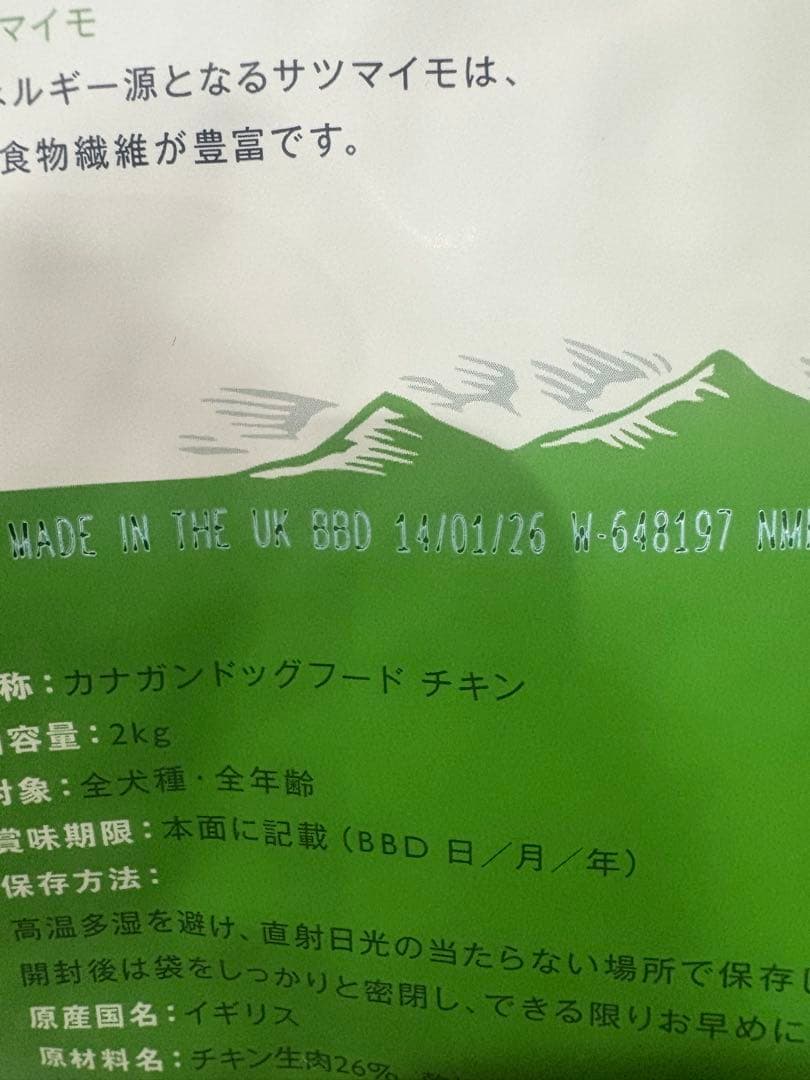 マイモ
ネルギー源となるサツマイモは、
食物繊維が豊富です。
MADE IN THE UK BBD 14/01/26 W-648197 NM
称：カナガンドッグフード チキン
容量：2kg
対象：全犬種・全年齢
賞味期限：本面に記載（BBD 日／月／年）
保存方法：
高温多湿を避け、直射日光の当たらない場所で保存し
開封後は袋をしっかりと密閉し、できる限りお早めに
原産国名：イギリス
原材料名：チキン生肉26%、